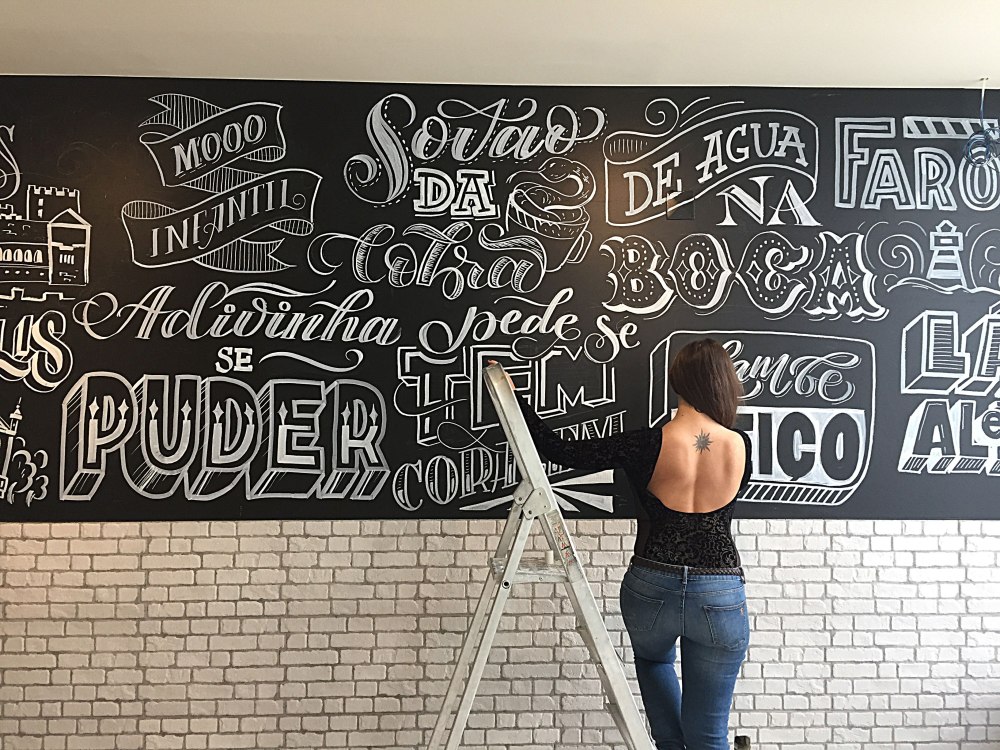 MOOO
INFANTIL
Sovaco
DA
Cobra
DE AGUA
NA
BOCA
FARO
Adivinha
SE
PUDER
pede se
TEM
CORA
Lambe
TICO
LIS
LÁ
Alé